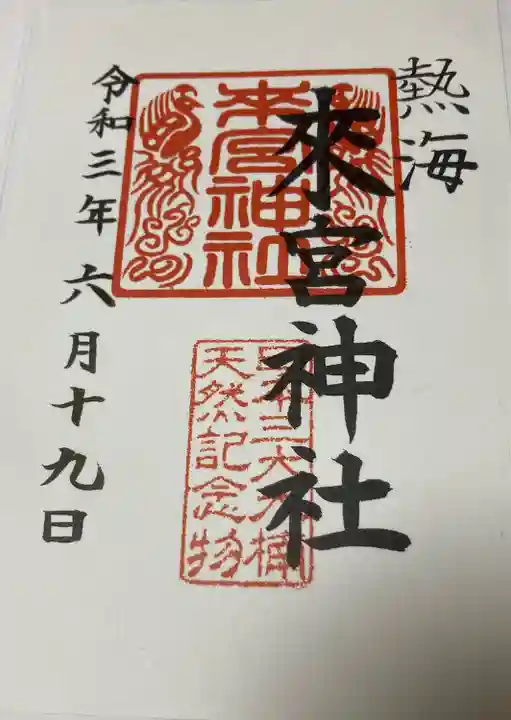 熱海
來宮神社
来宮神社
日本三大大楠
天然記念物
令和三年六月十九日